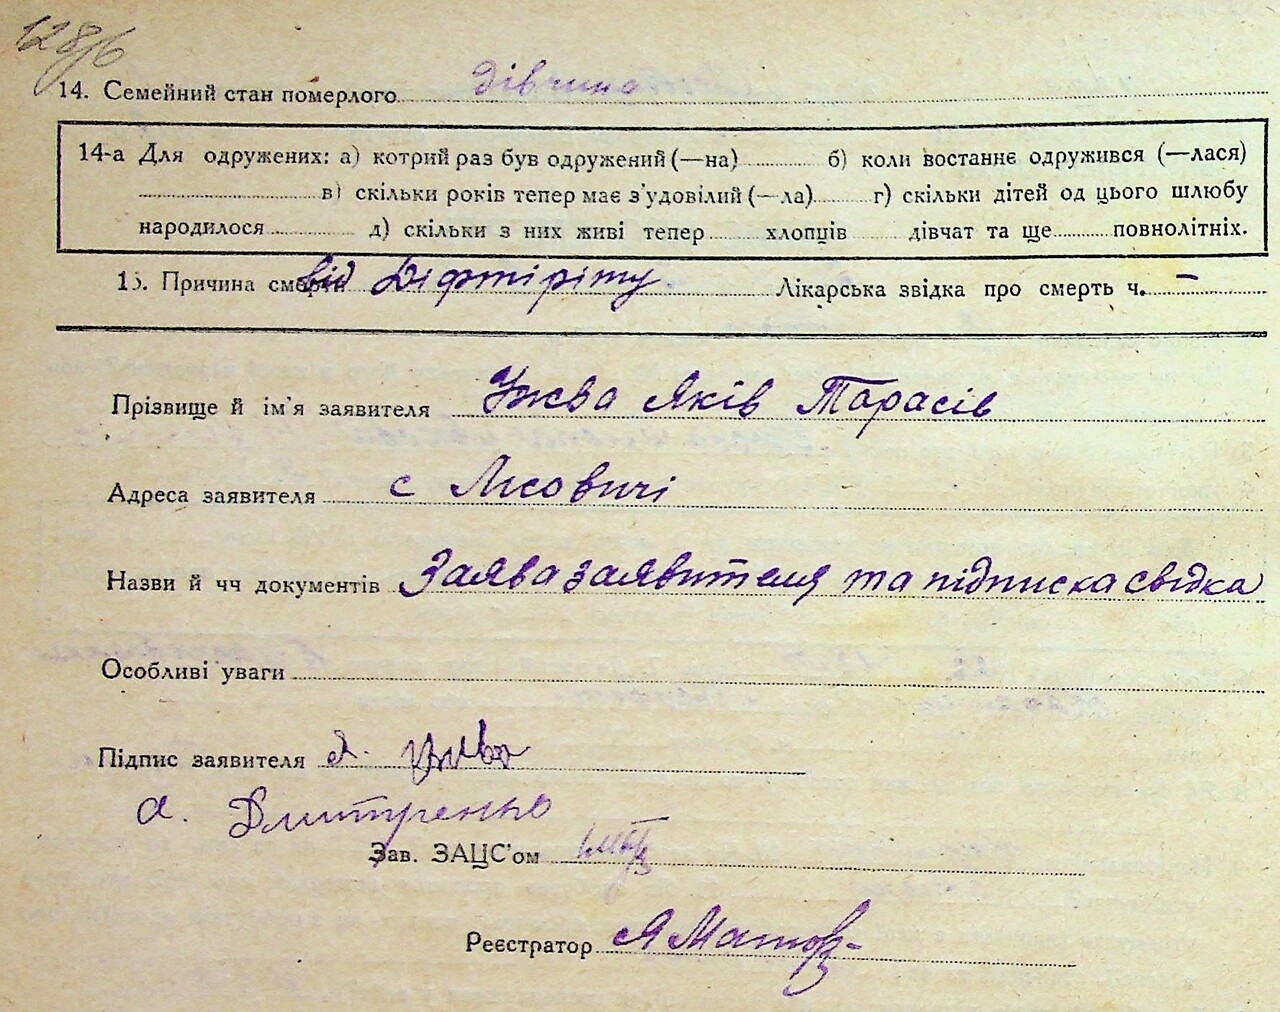 128/6
14. Семейний стан померлого дівчина
14-а Для одружених: а) котрий раз був одружений (—на) б) коли востаннє одружився (—лася)
в) скільки років тепер має з'удовілий (—ла) г) скільки дітей од цього шлюбу
народилося д) скільки з них живі тепер хлопців дівчат та ще повнолітніх.
15. Причина смерти від Діфтіріту. Лікарська звідка про смерть ч. —
Прізвище й ім'я заявителя Яків Тарасів
Адреса заявителя с Лісовичі
Назви й чч документів Заява заявителя та підписка свідка
Особливі уваги
Підпис заявителя Я.
а. Дмитренко
Зав. ЗАЦС'ом
Реєстратор Я